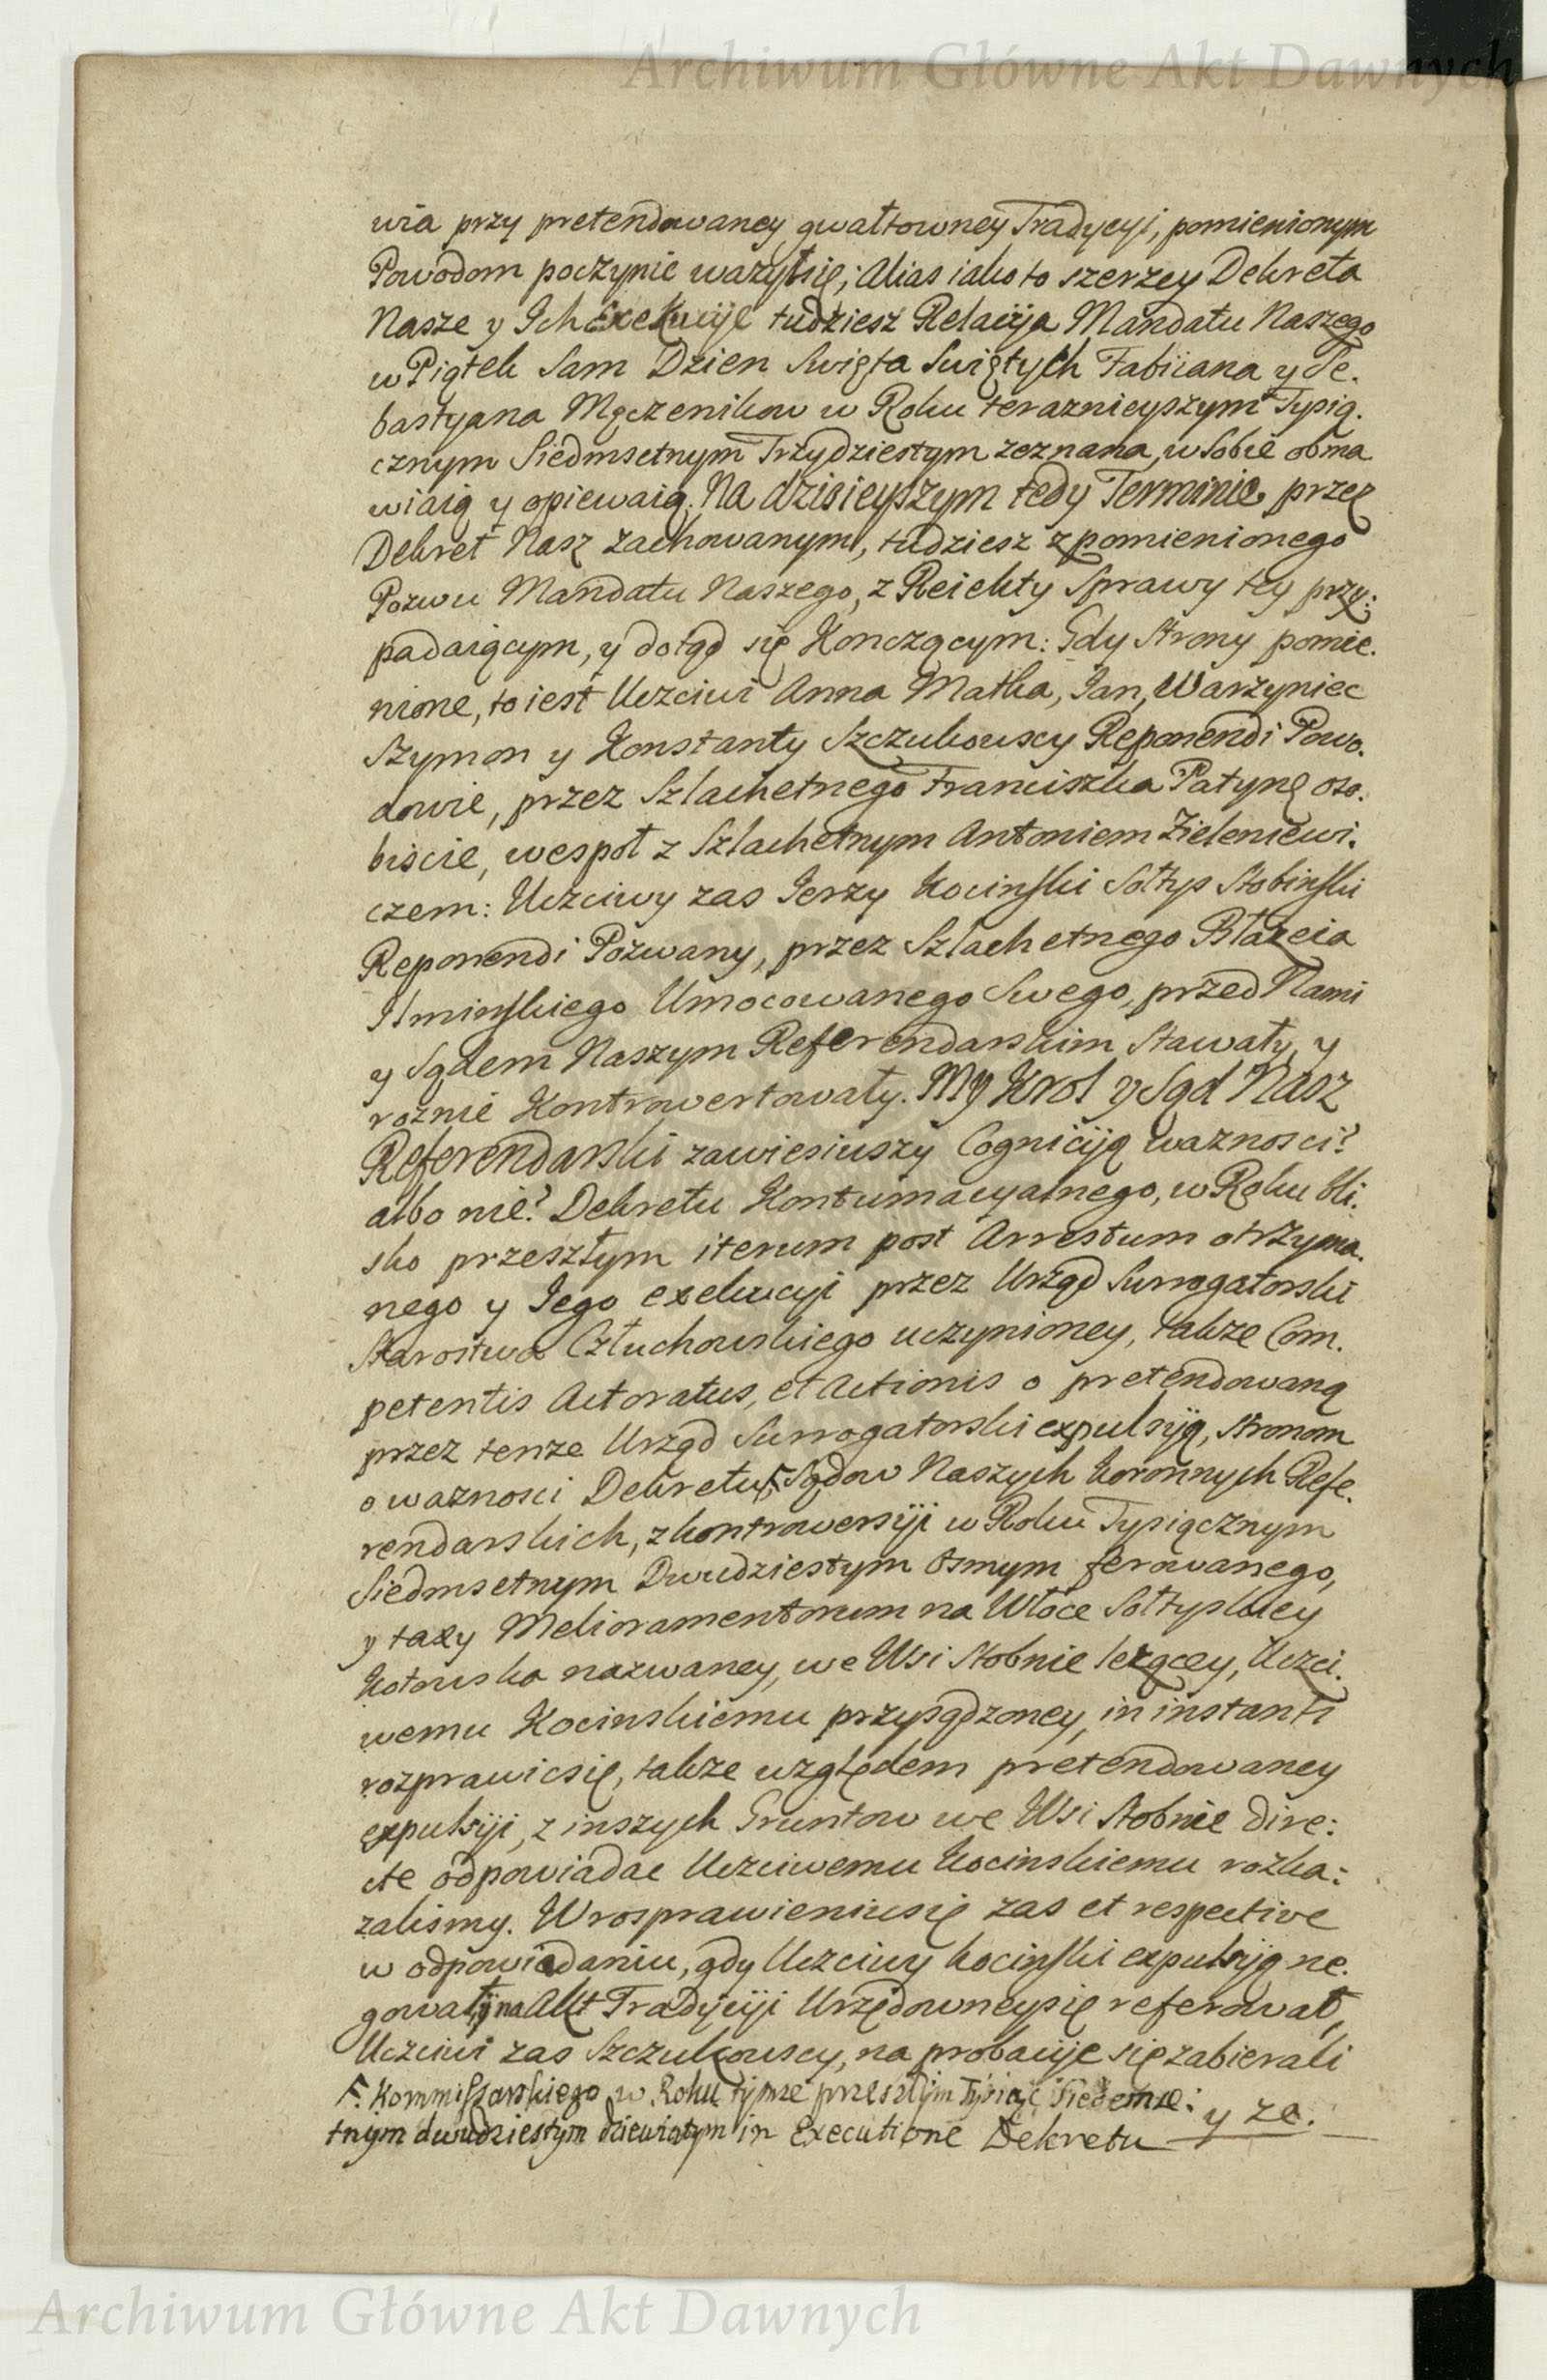 Archiwum Główne Akt Dawnych
wia przy pretendowaney gwałtowney Tradycyi, pomienionym
Powodom poczynic wazyłsię; Alias iako to szerzey Dekreta
Nasze y Ich Exekucyie tudziesz Relacyja Mandatu Naszego
w Piątek Sam Dzien Swięta Swiętych Fabiiana y Se.
bastyana Męczenikow w Roku teraznieyszym Tysią.
cznym Siedmsetnym Trzydziestym zeznana, w Sobie obma
wiaią y opiewaią. Na dzisieyszym tedy Terminie, przez
Dekret Nasz zachowanym, tudziesz z pomienionego
Pozwu Mandatu Naszego, z Reiekty Sprawy tey przy:
padaiącym, y dotąd się Konczącym: Gdy Strony pomie.
nione, to iest Uczciwi Anna Matka, Jan, Wawrzyniec
Szymon y Konstanty Szczukowscy Reponendi Powo.
dowie, przez Szlachetnego Franciszka Patynę oso.
biscie, wespoł z Szlachetnym Antoniem Zieleniewi.
czem: Uczciwy zas Jerzy Kocinski Sołtys Stobinski
Reponendi Pozwany, przez Szlachetnego Błazeia
Ilminskiego Umocowanego Swego, przed Nami
y Sądem Naszym Referendarskim Stawały, y
roznie Kontrowertowały. My Krol y Sąd Nasz
Referendarski zawiesiwszy Cogniciją waznosci?
albo nie? Dekretu Kontumacyalnego, w Roku bli.
sko przeszłym iterum post Arrestum otrzyma.
nego y Jego exekucyi przez Urząd Surrogatorski
Starostwa Człuchowskiego uczynioney, takze Com.
petentis Actoratus, et Actionis o pretendowaną
przez tenze Urząd Surrogatorski expulsyją, stronom
o waznosci Dekretu F Sądow Naszych Koronnych Refe.
rendarskich, z kontrowersyji w Roku Tysiącznym
Siedmsetnym Dwudziestym osmym ferowanego,
y taxy Melioramentorum na Włoce Sołtyskiey
Kotowska nazwaney, we Wsi Stobnie lezącey, Uczci.
wemu Kocinskiemu przysądzoney, in instanti
rozprawicsię, takze względem pretendowaney
expulsyji, z inszych Gruntow we Wsi Stobnie dire:
cte odpowiadac Uczciwemu Kocinskiemu rozka:
zalismy. W rosprawieniusię zas et respective
w odpowiadaniu, gdy Uczciwy Kocinski expulsyją ne.
gował, y na Akt Tradycyji Urzędowneysię referował,
Uczciwi zas Szczukowscy, na probacyje się zabierali
F. Kommissarskiego w Roku tymze przeszłym Tysiąc Siedemse:
tnym dwudziestym dziewiątym in Executione Dekretu
y ze.
Archiwum Główne Akt Dawnych